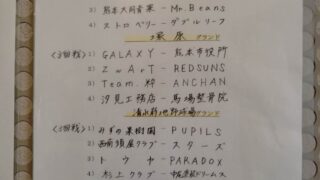 3) 熊本大同青果 - Mr.Beans
4) ストロベリー - ダブルリーフ
塚原グランド
〈2回戦〉 1) GALAXY - 熊本市役所
2) ZwArT - REDSUNS
3) Team.粋 - ANCHAN
4) 汐見工務店 - 馬場整骨院
清水新地野球場グランド
〈3回戦〉 1) みずの果樹園 - PUPILS
2) 西南須屋クラブ - スターズ
3) トウヤ - PARADOX
4) 上クラブ - ドリームス